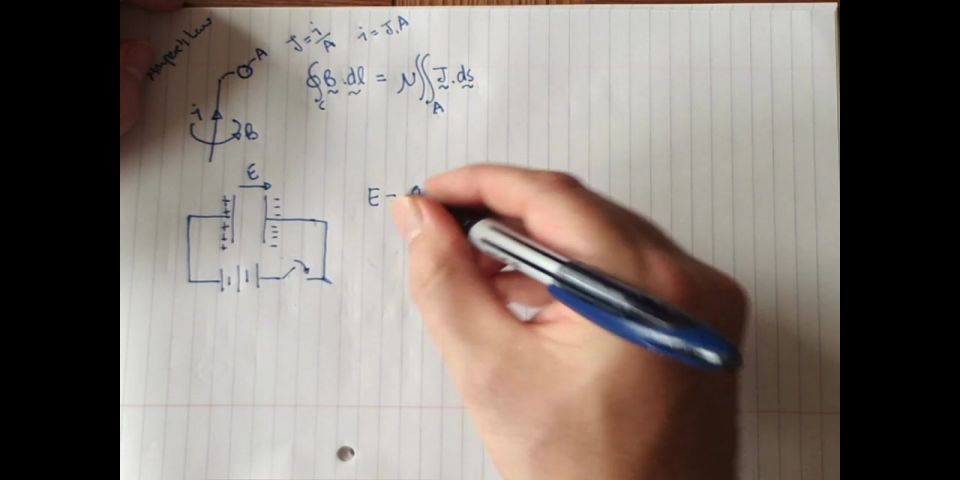 Ampere's Law
J = i/A i = J.A
A
∮_C B . dl = μ∬_A J . ds
i
B
E
E =
++++
---
---